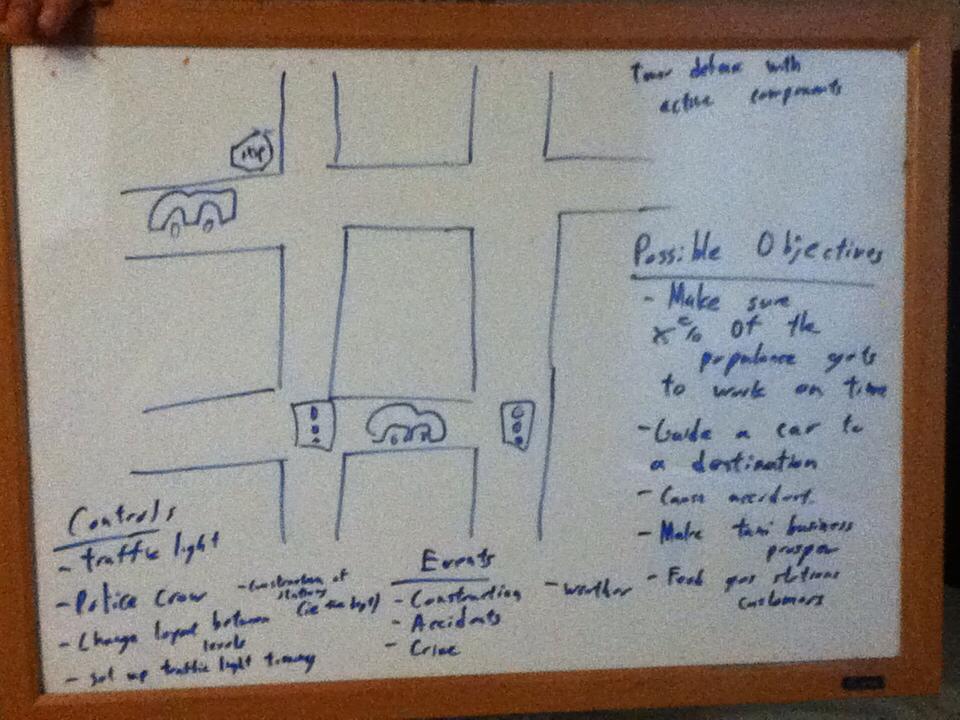 Tower defense with
active components
stop
Possible Objectives
- Make sure
x% of the
populance gets
to work on time
- Guide a car to
a destination
- Cause accident
- Make taxi business
prosper
- Feed gas stations
customers
Controls
- traffic light
- Police Crew
- Change layout between
levels
- set up traffic light timing
- Construction of
stations
Events
- Construction
- Accidents
- Crime
- weather